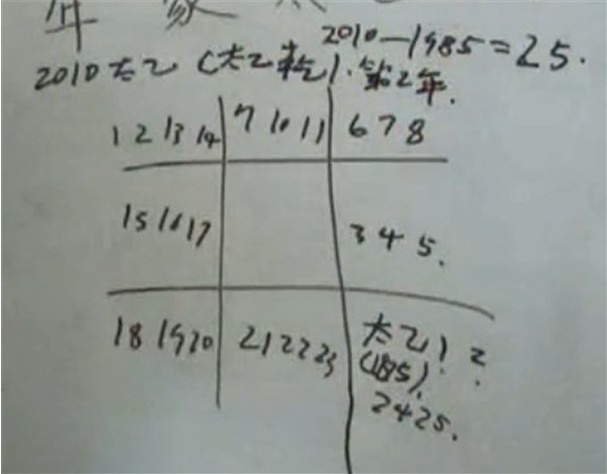 年 家
2010—1985=25.
2010太乙(太乙乾).第2年.
12 13 14 9 10 11 6 7 8
15 16 17 3 4 5.
18 19 20 21 22 23 太乙1 2.
(1985).
24 25.